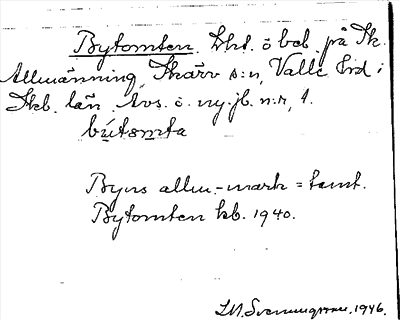 Bytomten. Lht. o beb. på Sk.
Allmänning, Skärv s:n, Valle hd i
Skb. län. Avs. o. ny. jb. n:r, 1.
bútomta
Byns allm.-mark = tomt.
Bytomten kb. 1940.
1946.